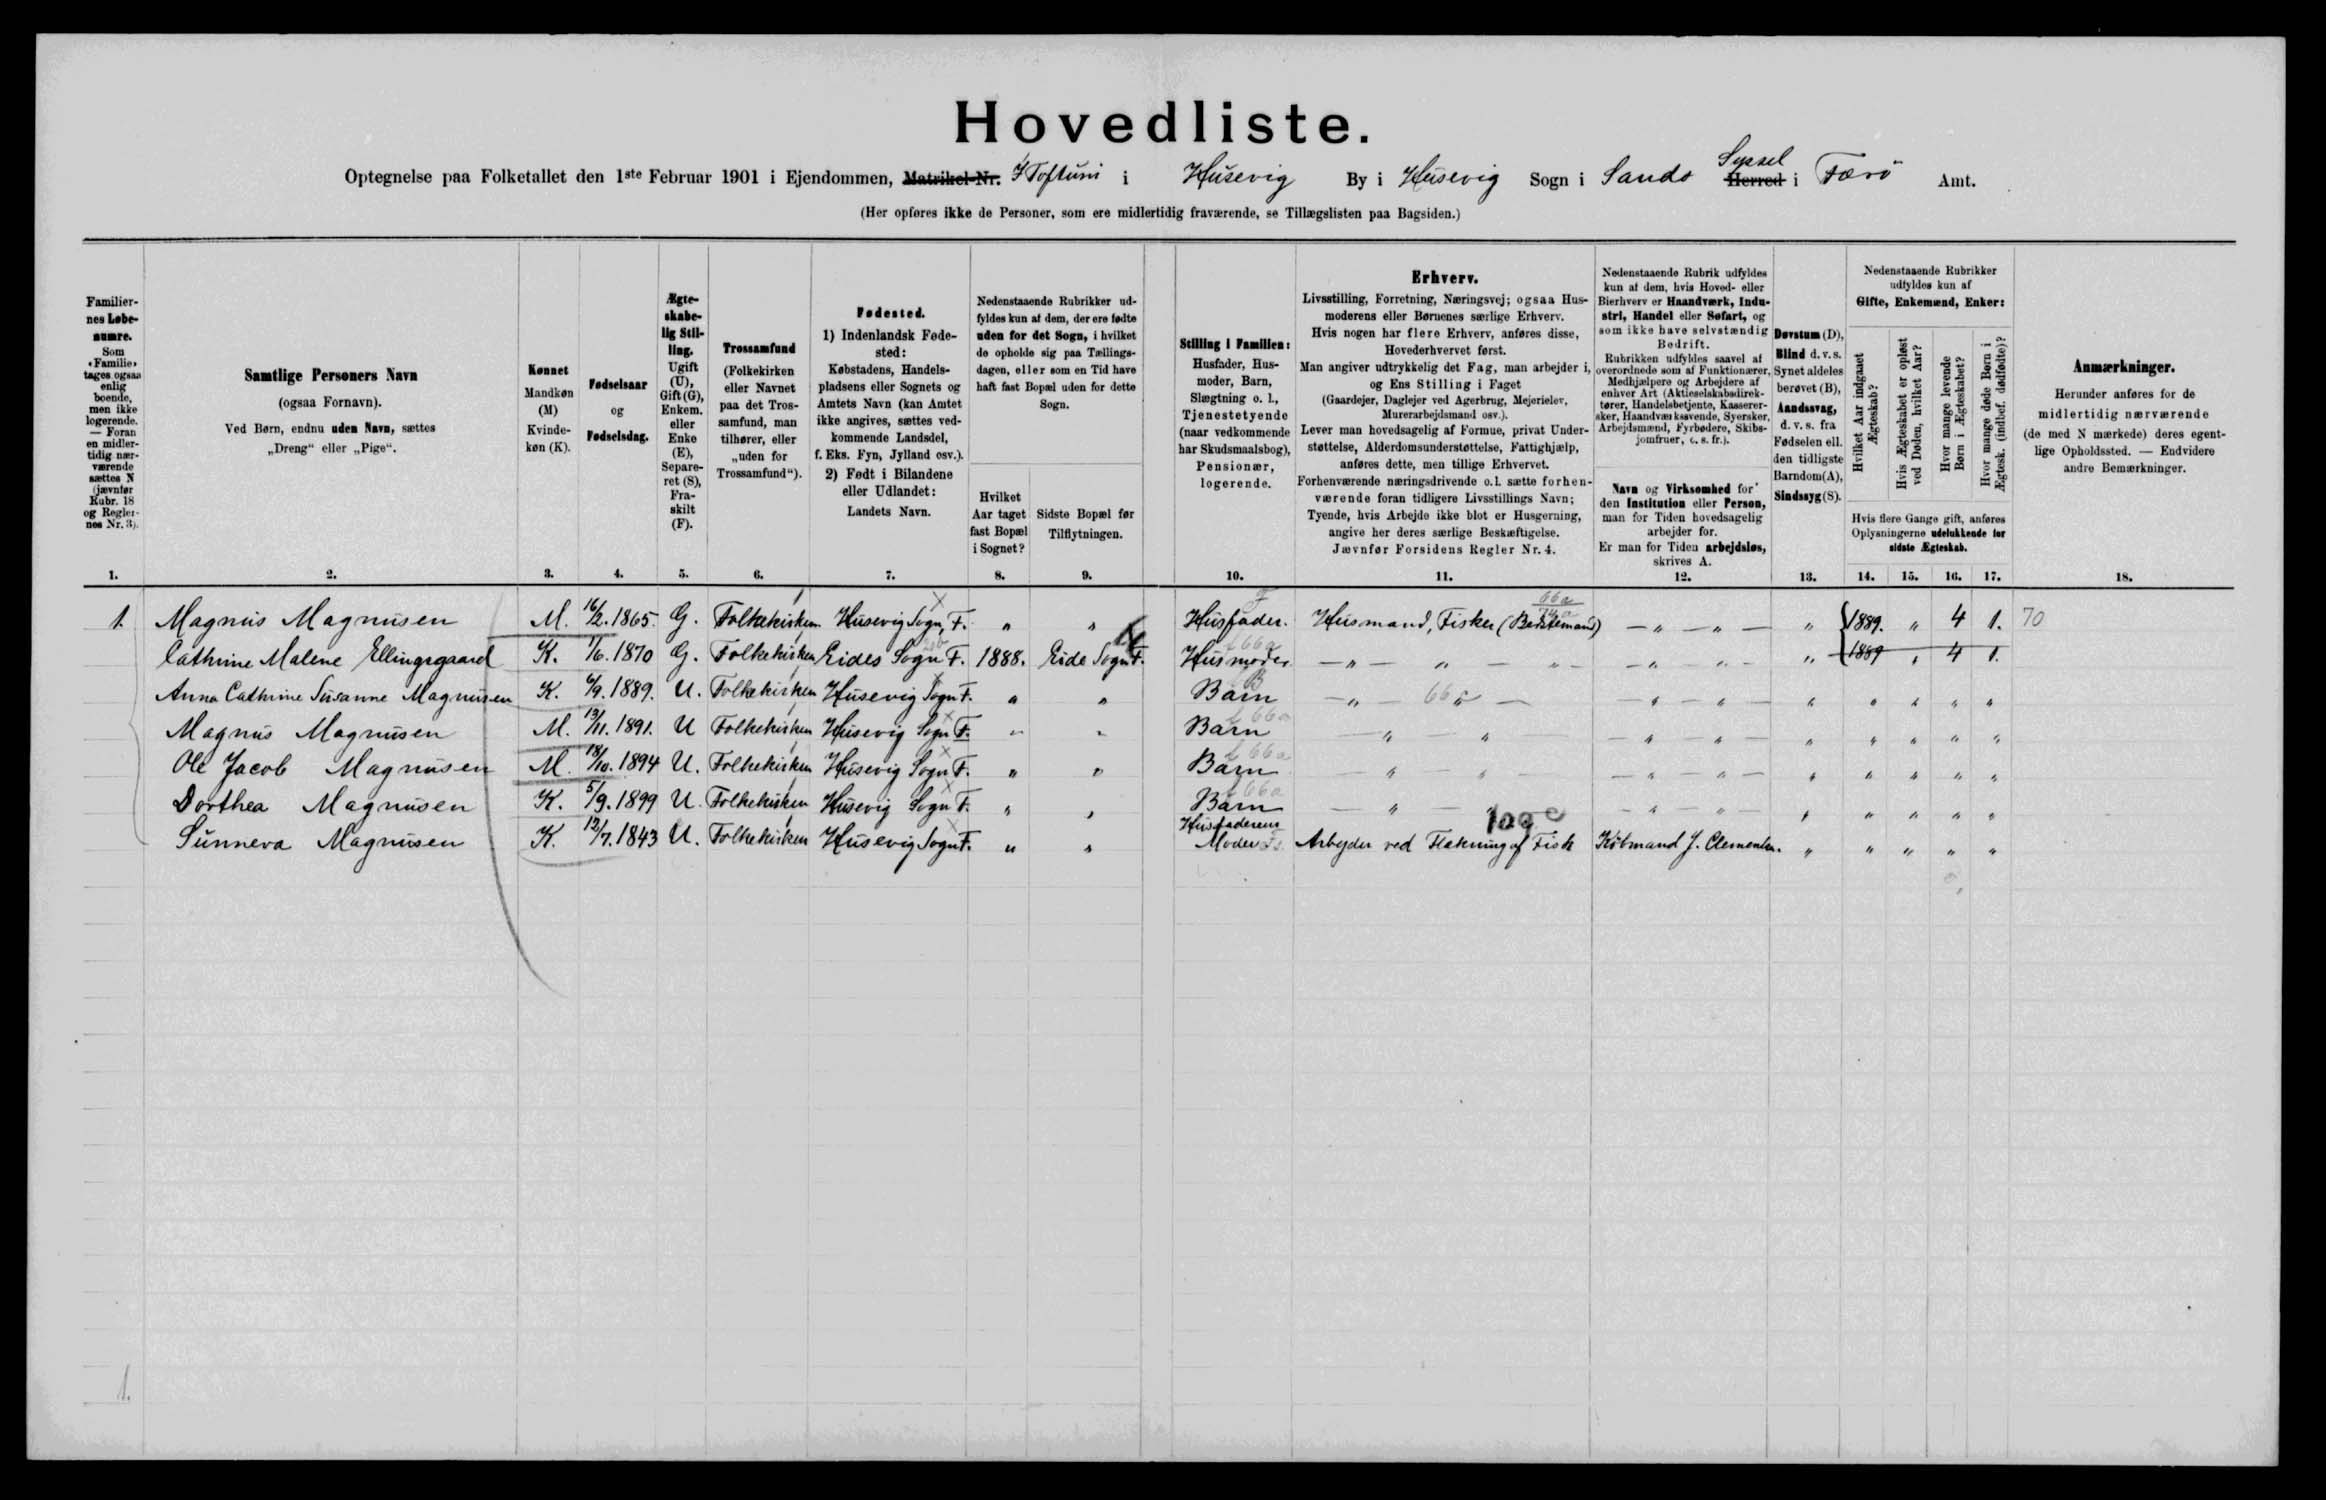 Hovedliste.
Optegnelse paa Folketallet den 1ste Februar 1901 i Ejendommen, Matrikel-Nr. I Toftuni i Husevig By i Husevig Sogn i Sands Syssel Herred i Færø Amt.
(Her opføres ikke de Personer, som ere midlertidig fraværende, se Tillægslisten paa Bagsiden.)
Familier-
nes Løbe-
numre.
Som
«Familie»
tages ogsaa
enlig
boende,
men ikke
logerende.
— Foran
en midler-
tidig nær-
værende
sættes N
(jævnfør
Rubr. 18
og Regler-
nes Nr. 3).
1.
Samtlige Personers Navn
(ogsaa Fornavn).
Ved Børn, endnu uden Navn, sættes
„Dreng“ eller „Pige“.
2.
Kønnet
Mandkøn
(M)
Kvinde-
køn (K).
3.
Fødselsaar
og
Fødselsdag.
4.
Ægte-
skabe-
lig Stil-
ling.
Ugift
(U),
Gift (G),
Enkem.
eller
Enke
(E),
Separe-
ret (S),
Fra-
skilt
(F).
5.
Trossamfund
(Folkekirken
eller Navnet
paa det Tros-
samfund, man
tilhører, eller
„uden for
Trossamfund“).
6.
Fødested.
1) Indenlandsk Føde-
sted:
Købstadens, Handels-
pladsens eller Sognets og
Amtets Navn (kan Amtet
ikke angives, sættes ved-
kommende Landsdel,
f. Eks. Fyn, Jylland osv.).
2) Født i Bilandene
eller Udlandet:
Landets Navn.
7.
Nedenstaaende Rubrikker ud-
fyldes kun af dem, der ere fødte
uden for det Sogn, i hvilket
de opholde sig paa Tællings-
dagen, eller som en Tid have
haft fast Bopæl uden for dette
Sogn.
Hvilket
Aar taget
fast Bopæl
i Sognet?
8.
Sidste Bopæl før
Tilflytningen.
9.
Stilling i Familien:
Husfader, Hus-
moder, Barn,
Slægtning o. l.,
Tjenestetyende
(naar vedkommende
har Skudsmaalsbog),
Pensionær,
logerende.
10.
Erhverv.
Livsstilling, Forretning, Næringsvej; ogsaa Hus-
moderens eller Børnenes særlige Erhverv.
Hvis nogen har flere Erhverv, anføres disse,
Hovederhvervet først.
Man angiver udtrykkelig det Fag, man arbejder i,
og Ens Stilling i Faget
(Gaardejer, Daglejer ved Agerbrug, Mejerielev,
Murerarbejdsmand osv.).
Lever man hovedsagelig af Formue, privat Under-
støttelse, Alderdomsunderstøttelse, Fattighjælp,
anføres dette, men tillige Erhvervet.
Forhenværende næringsdrivende o. l. sætte forhen-
værende foran tidligere Livsstillings Navn;
Tyende, hvis Arbejde ikke blot er Husgerning,
angive her deres særlige Beskæftigelse.
Jævnfør Forsidens Regler Nr. 4.
11.
Nedenstaaende Rubrik udfyldes
kun af dem, hvis Hoved- eller
Bierhverv er Haandværk, Indu-
stri, Handel eller Søfart, og
som ikke have selvstændig
Bedrift.
Rubrikken udfyldes saavel af
overordnede som af Funktionærer,
Medhjælpere og Arbejdere af
enhver Art (Aktieselskabsdirek-
tører, Handelsbetjente, Kasserer-
sker, Haandværkssvende, Syersker,
Arbejdsmænd, Fyrbødere, Skibs-
jomfruer, o. s. fr.).
Navn og Virksomhed for
den Institution eller Person,
man for Tiden hovedsagelig
arbejder for.
Er man for Tiden arbejdsløs,
skrives A.
12.
Døvstum (D),
Blind d. v. s.
Synet aldeles
berøvet (B),
Aandssvag,
d. v. s. fra
Fødselen ell.
den tidligste
Barndom (A),
Sindssyg (S).
13.
Nedenstaaende Rubrikker
udfyldes kun af
Gifte, Enkemænd, Enker:
Hvilket Aar indgaaet
Ægteskab?
Hvis Ægteskabet er opløst
ved Døden, hvilket Aar?
Hvor mange levende
Børn i Ægteskabet?
Hvor mange døde Børn i
Ægtesk. (indbef. dødfødte)?
Hvis flere Gange gift, anføres
Oplysningerne udelukkende for
sidste Ægteskab.
14. 15. 16. 17.
Anmærkninger.
Herunder anføres for de
midlertidig nærværende
(de med N mærkede) deres egent-
lige Opholdssted. — Endvidere
andre Bemærkninger.
18.
66a
1. Magnus Magnusen M. 16/2. 1865. G. Folkekirken Husevig Sogn, F. " " Husfader. Husmand, Fisker — " — " — " 1889. " 4 1. 70
Cathrine Malene Ellingsgaard K. 1/6. 1870 G. Folkekirken Eides Sogn F. 1888. Eide Sogn F. Husmoder — " — " — " — " 1889 " 4 1.
Anna Cathrine Susanne Magnusen K. 6/9. 1889. U. Folkekirken Husevig Sogn F. " " Barn — " — 66a — " — " — " " " " "
Magnus Magnusen M. 13/11. 1891. U Folkekirken Husevig Sogn F. " " Barn — " " — " — " — " " " " "
Ole Jacob Magnusen M. 18/10. 1894 U. Folkekirken Husevig Sogn F. " " Barn — " — " — " — " — " " " " "
Dorthea Magnusen K. 5/9. 1899 U. Folkekirken Husevig Sogn F. " " Barn — " — " — " — " " " " "
Sunneva Magnusen K. 12/7. 1843 U. Folkekirken Husevig Sogn F. " " Husfaderens
Moder Arbejder ved Flækning af Fisk Købmand J. Clementsen. " " " " "
1.